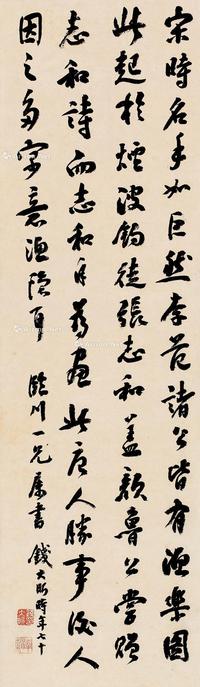 宋時名手如巨然李范諸公皆有漁樂圖
此起於煙波釣徒張志和蓋顏魯公嘗贈
志和詩而志和自為畫此唐人勝事後人
因之多寓意漁隱耳 臨川一兄屬書 錢大昕時年七十